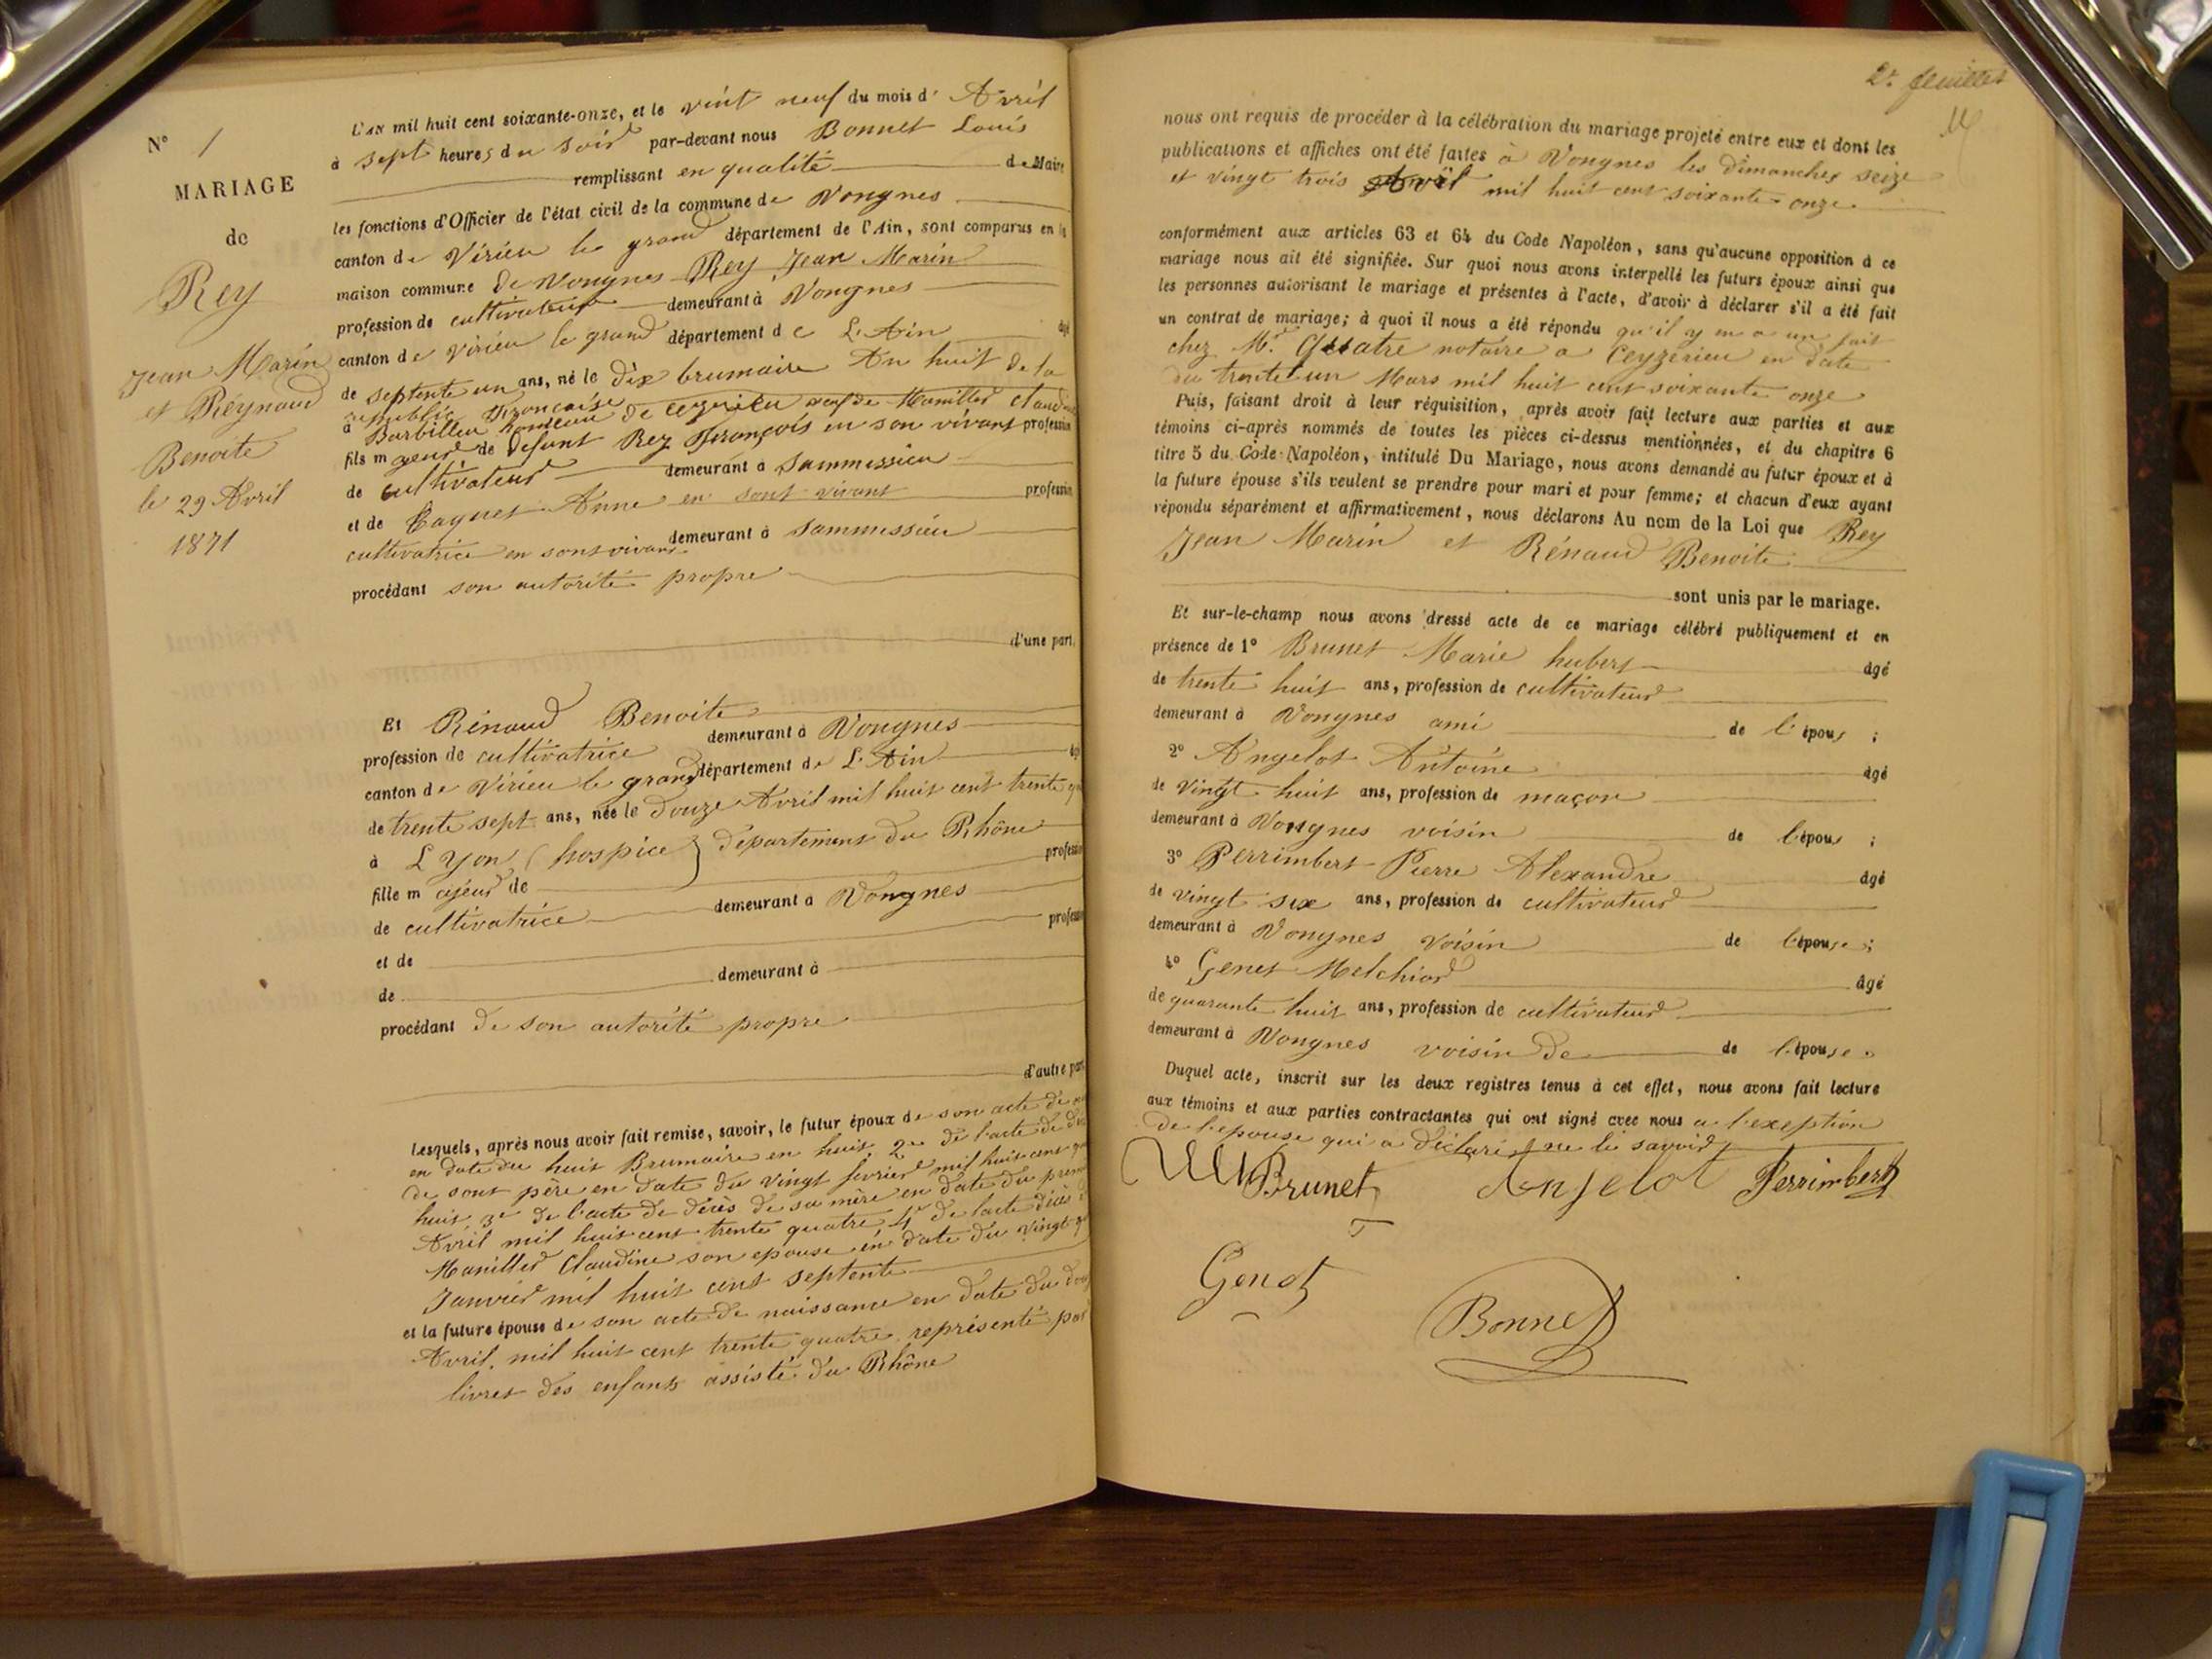 N° 1
MARIAGE
de
Rey
Jean Marin
et Réynaud
Benoite
le 29 Avril
1871
L'AN mil huit cent soixante-onze, et le vint neuf du mois d' Avril
à sept heures du soir par-devant nous Bonnet Louis
remplissant en qualité de Maire
les fonctions d'Officier de l'état civil de la commune de Vongnes
canton de Virieu le grand département de l'Ain, sont comparus en la
maison commune de Vongnes Rey Jean Marin
profession de cultivateur demeurant à Vongnes
canton de Virieu le grand département de L'Ain âgé
de septente un ans, né le dix brumaire An huit de la
republic françaíse
à Barbillieu hameau de Ceyzerieu veuf de Manillier Claudine
fils majeur de defunt Rey François en son vivant profession
de cultivateur demeurant à Sammessieu
et de Cagnet Anne en sont vivant profession
cultivatrice en sont vivant demeurant à Sammessieu
procédant son autorité propre
d'une part.
Et Rénaud Benoite
profession de cultivatrice demeurant à Vongnes
canton de Virieu le grand département de L'Ain âgé
de trente sept ans, née le douze Avril mil huit cent trente
à Lyon (hospice) département du Rhône
fille majeur de profession
de cultivatrice demeurant à Vongnes
et de profession
de demeurant à
procédant de son autorité propre
d'autre part
Lesquels, après nous avoir fait remise, savoir, le futur époux de son acte de
en date du huit Brumaire en huit, 2e de l'acte de
de sont père en date du vingt février mil huit cent
huit 3e de l'acte de décès de sa mère en date du
Avril mil huit cent trente quatre 4e de l'acte décès
Manillier Claudine son epouse en date du vingt
Janvier mil huit cent septente
et la future épouse de son acte de naissance en date du
Avril mil huit cent trente quatre représenté par
livret des enfants assisté du Rhône
2e feuillet
nous ont requis de procéder à la célébration du mariage projeté entre eux et dont les
publications et affiches ont été faites à Vongnes les dimanches seize
et vingt trois Avril mil huit cent soixante-onze
conformément aux articles 63 et 64 du Code Napoléon, sans qu'aucune opposition à ce
mariage nous ait été signifiée. Sur quoi nous avons interpellé les futurs époux ainsi que
les personnes autorisant le mariage et présentes à l'acte, d'avoir à déclarer s'il a été fait
un contrat de mariage; à quoi il nous a été répondu qu'il y en a un fait
chez Mr. Quatre notaire a Ceyzerieu en date
du trentet un Mars mil huit cent soixante onze
Puis, faisant droit à leur réquisition, après avoir fait lecture aux parties et aux
témoins ci-après nommés de toutes les pièces ci-dessus mentionnées, et du chapitre 6
titre 5 du Code Napoléon, intitulé Du Mariage, nous avons demandé au futur époux et à
la future épouse s'ils veulent se prendre pour mari et pour femme; et chacun d'eux ayant
répondu séparément et affirmativement, nous déclarons Au nom de la Loi que Rey
Jean Marin et Rénaud Benoite
sont unis par le mariage.
Et sur-le-champ nous avons dressé acte de ce mariage célébré publiquement et en
présence de 1° Brunet Marie hubert âgé
de trente huit ans, profession de cultivateur
demeurant à Vongnes ami de l'époux ;
2° Angelot Antoine âgé
de vingt huit ans, profession de maçon
demeurant à Vongnes voisin de l'époux ;
3° Perrimbert Pierre Alexandre âgé
de vingt six ans, profession de cultivateur
demeurant à Vongnes voisin de l'épouse ;
4° Genet Melchior âgé
de quarante huit ans, profession de cultivateur
demeurant à Vongnes voisin de de l'épouse.
Duquel acte, inscrit sur les deux registres tenus à cet effet, nous avons fait lecture
aux témoins et aux parties contractantes qui ont signé avec nous a l'exeption
de l'epouse qui a déclaré ne le savoir
Brunet Angelot Perrimbert
Genet
Bonnet